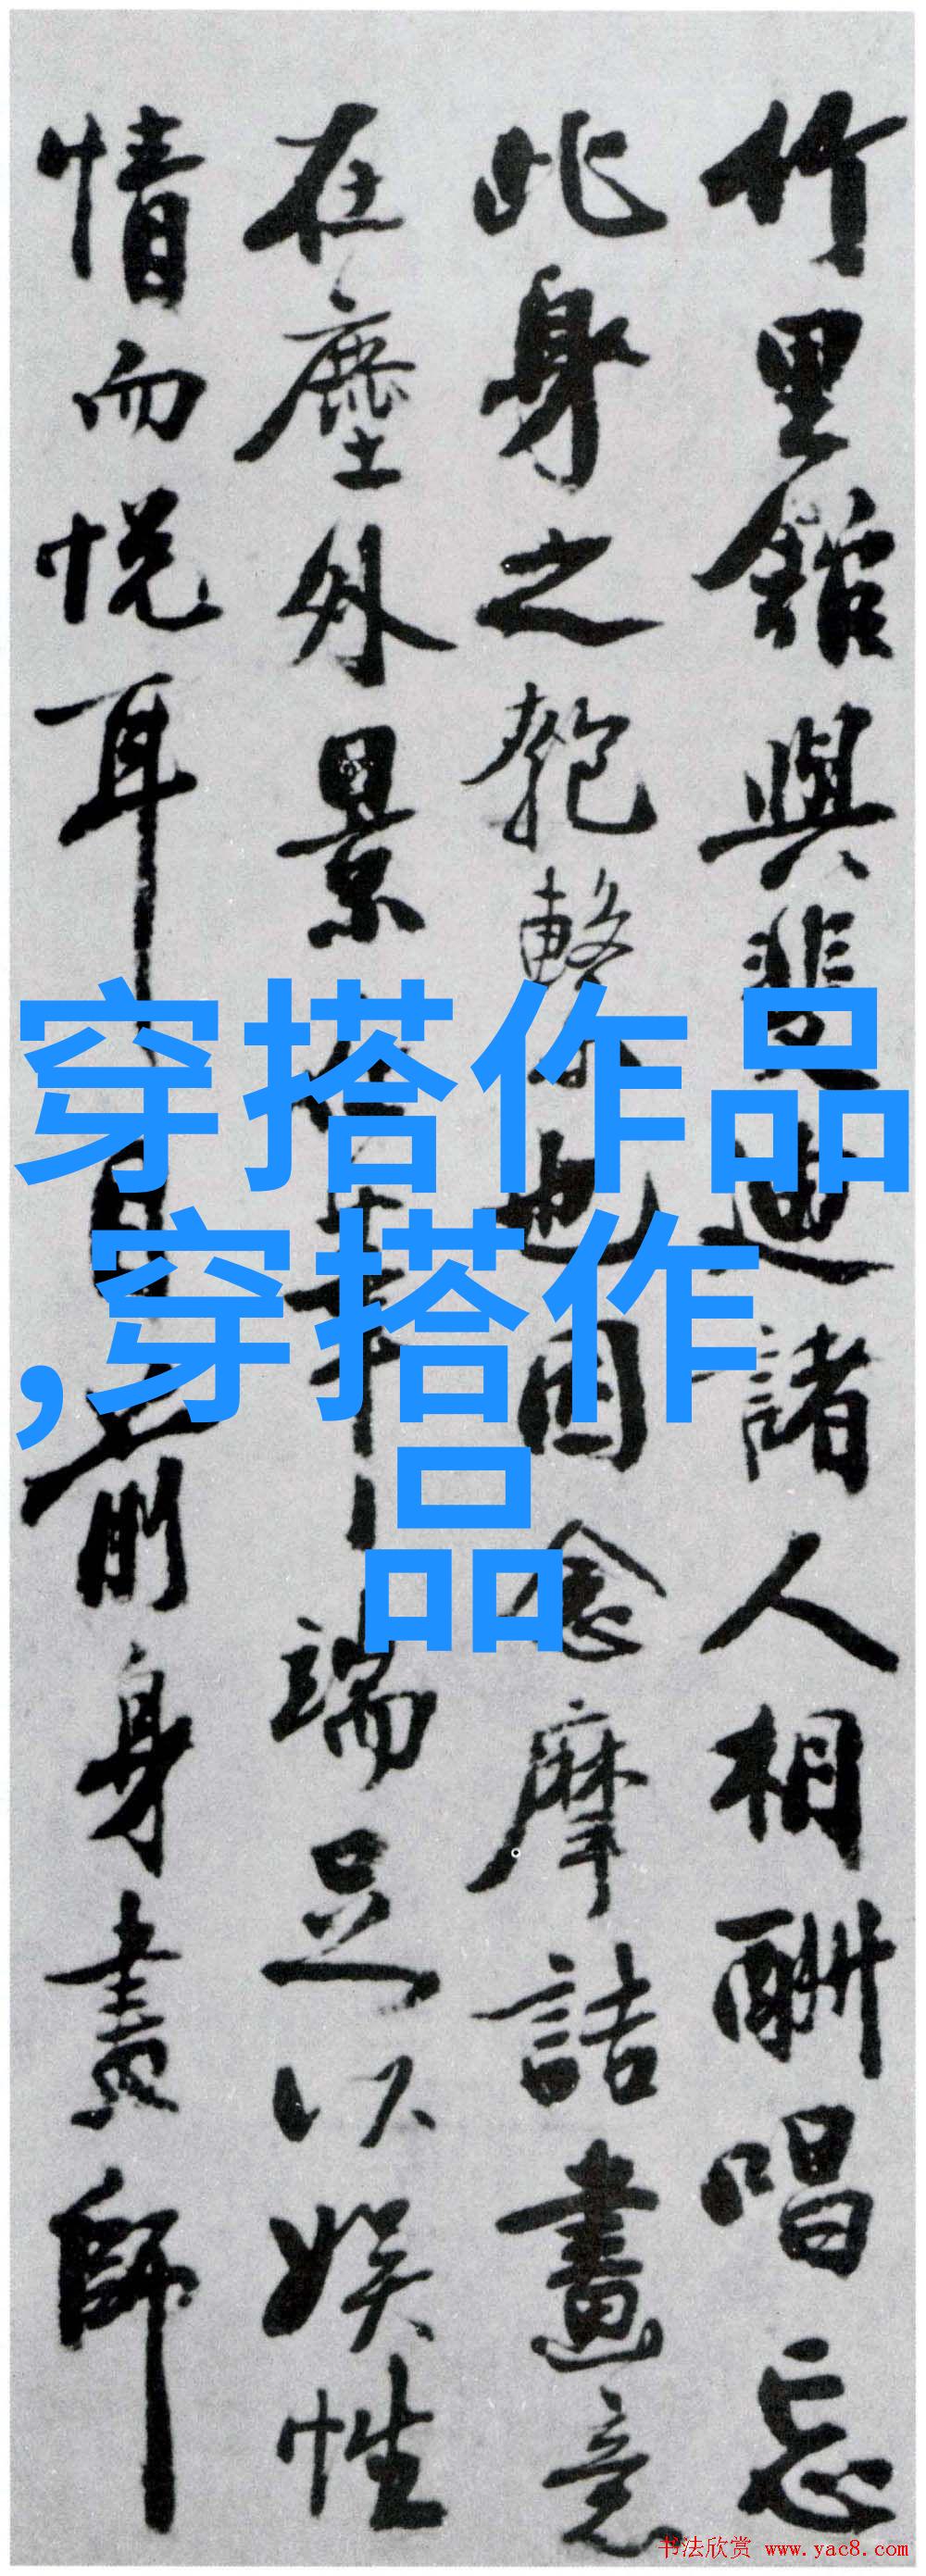 竹里館與裴迪諸人相酬唱忘
此身之匏繫也因念摩詰畫意
在塵外景 端足以娛性
情而悦耳目前身畫師
穿搭作品
,穿搭作
品
书法欣赏 www.yac8.com